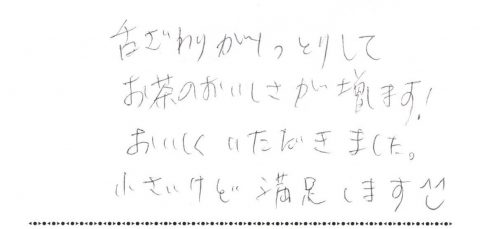 舌ざわりがしっとりして
お茶のおいしさが増します!
おいしくいただきました。
小さいけど満足します^^